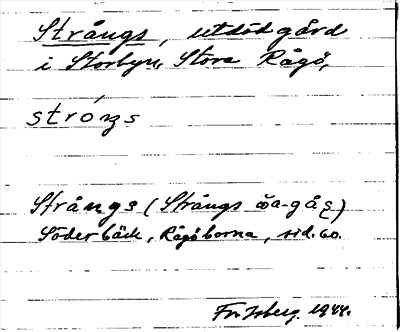 Strångs, utdöd gård
i Storbyn, Stora Rågö,
stróŋs
Strångs (Strångs
Söderbäck, Rågöborna, sid. 60.
Fr. Isberg 1944.